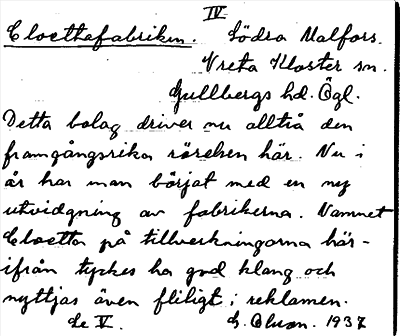 IV
Cloettafabriken. Södra Malfors.
Vreta Kloster sn.
Gullbergs hd. Ögl.
Detta bolag driver nu alltså den
framgångsrika rörelsen här. Nu i
år har man börjat med en ny
utvidgning av fabrikerna. Namnet
Cloetta på tillverkningarna här-
ifrån tyckes ha god klang och
nyttjas även fliligt i reklamen.
Se V. G. Olson. 1937